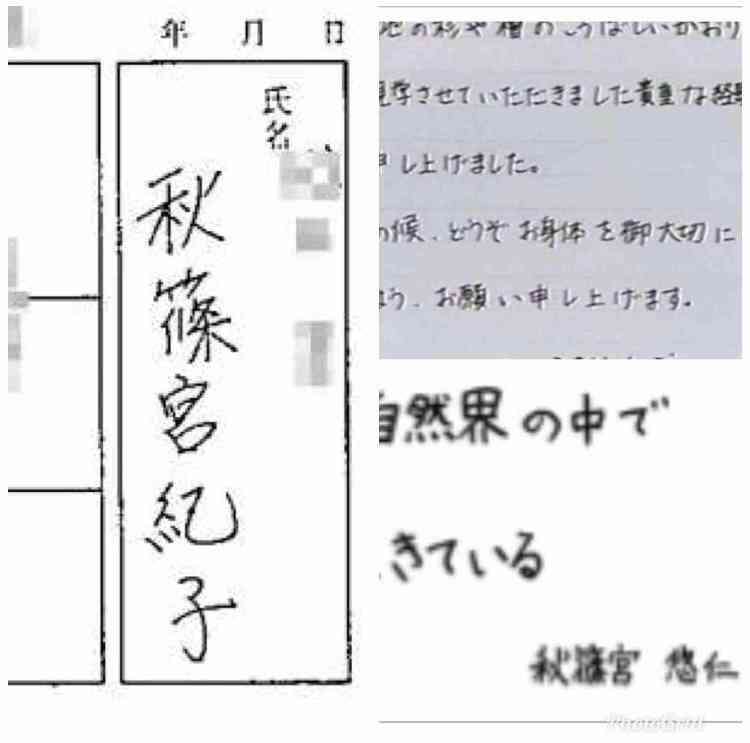 年 月 日
氏名
秋篠宮紀子
の杉や檜のこうばしいかおり
見学させていただきました貴重な経験
申し上げました。
の候、どうぞお身体を御大切に
よう、お願い申し上げます。
自然界の中で
きている
秋篠宮 悠仁
PhotoGrid